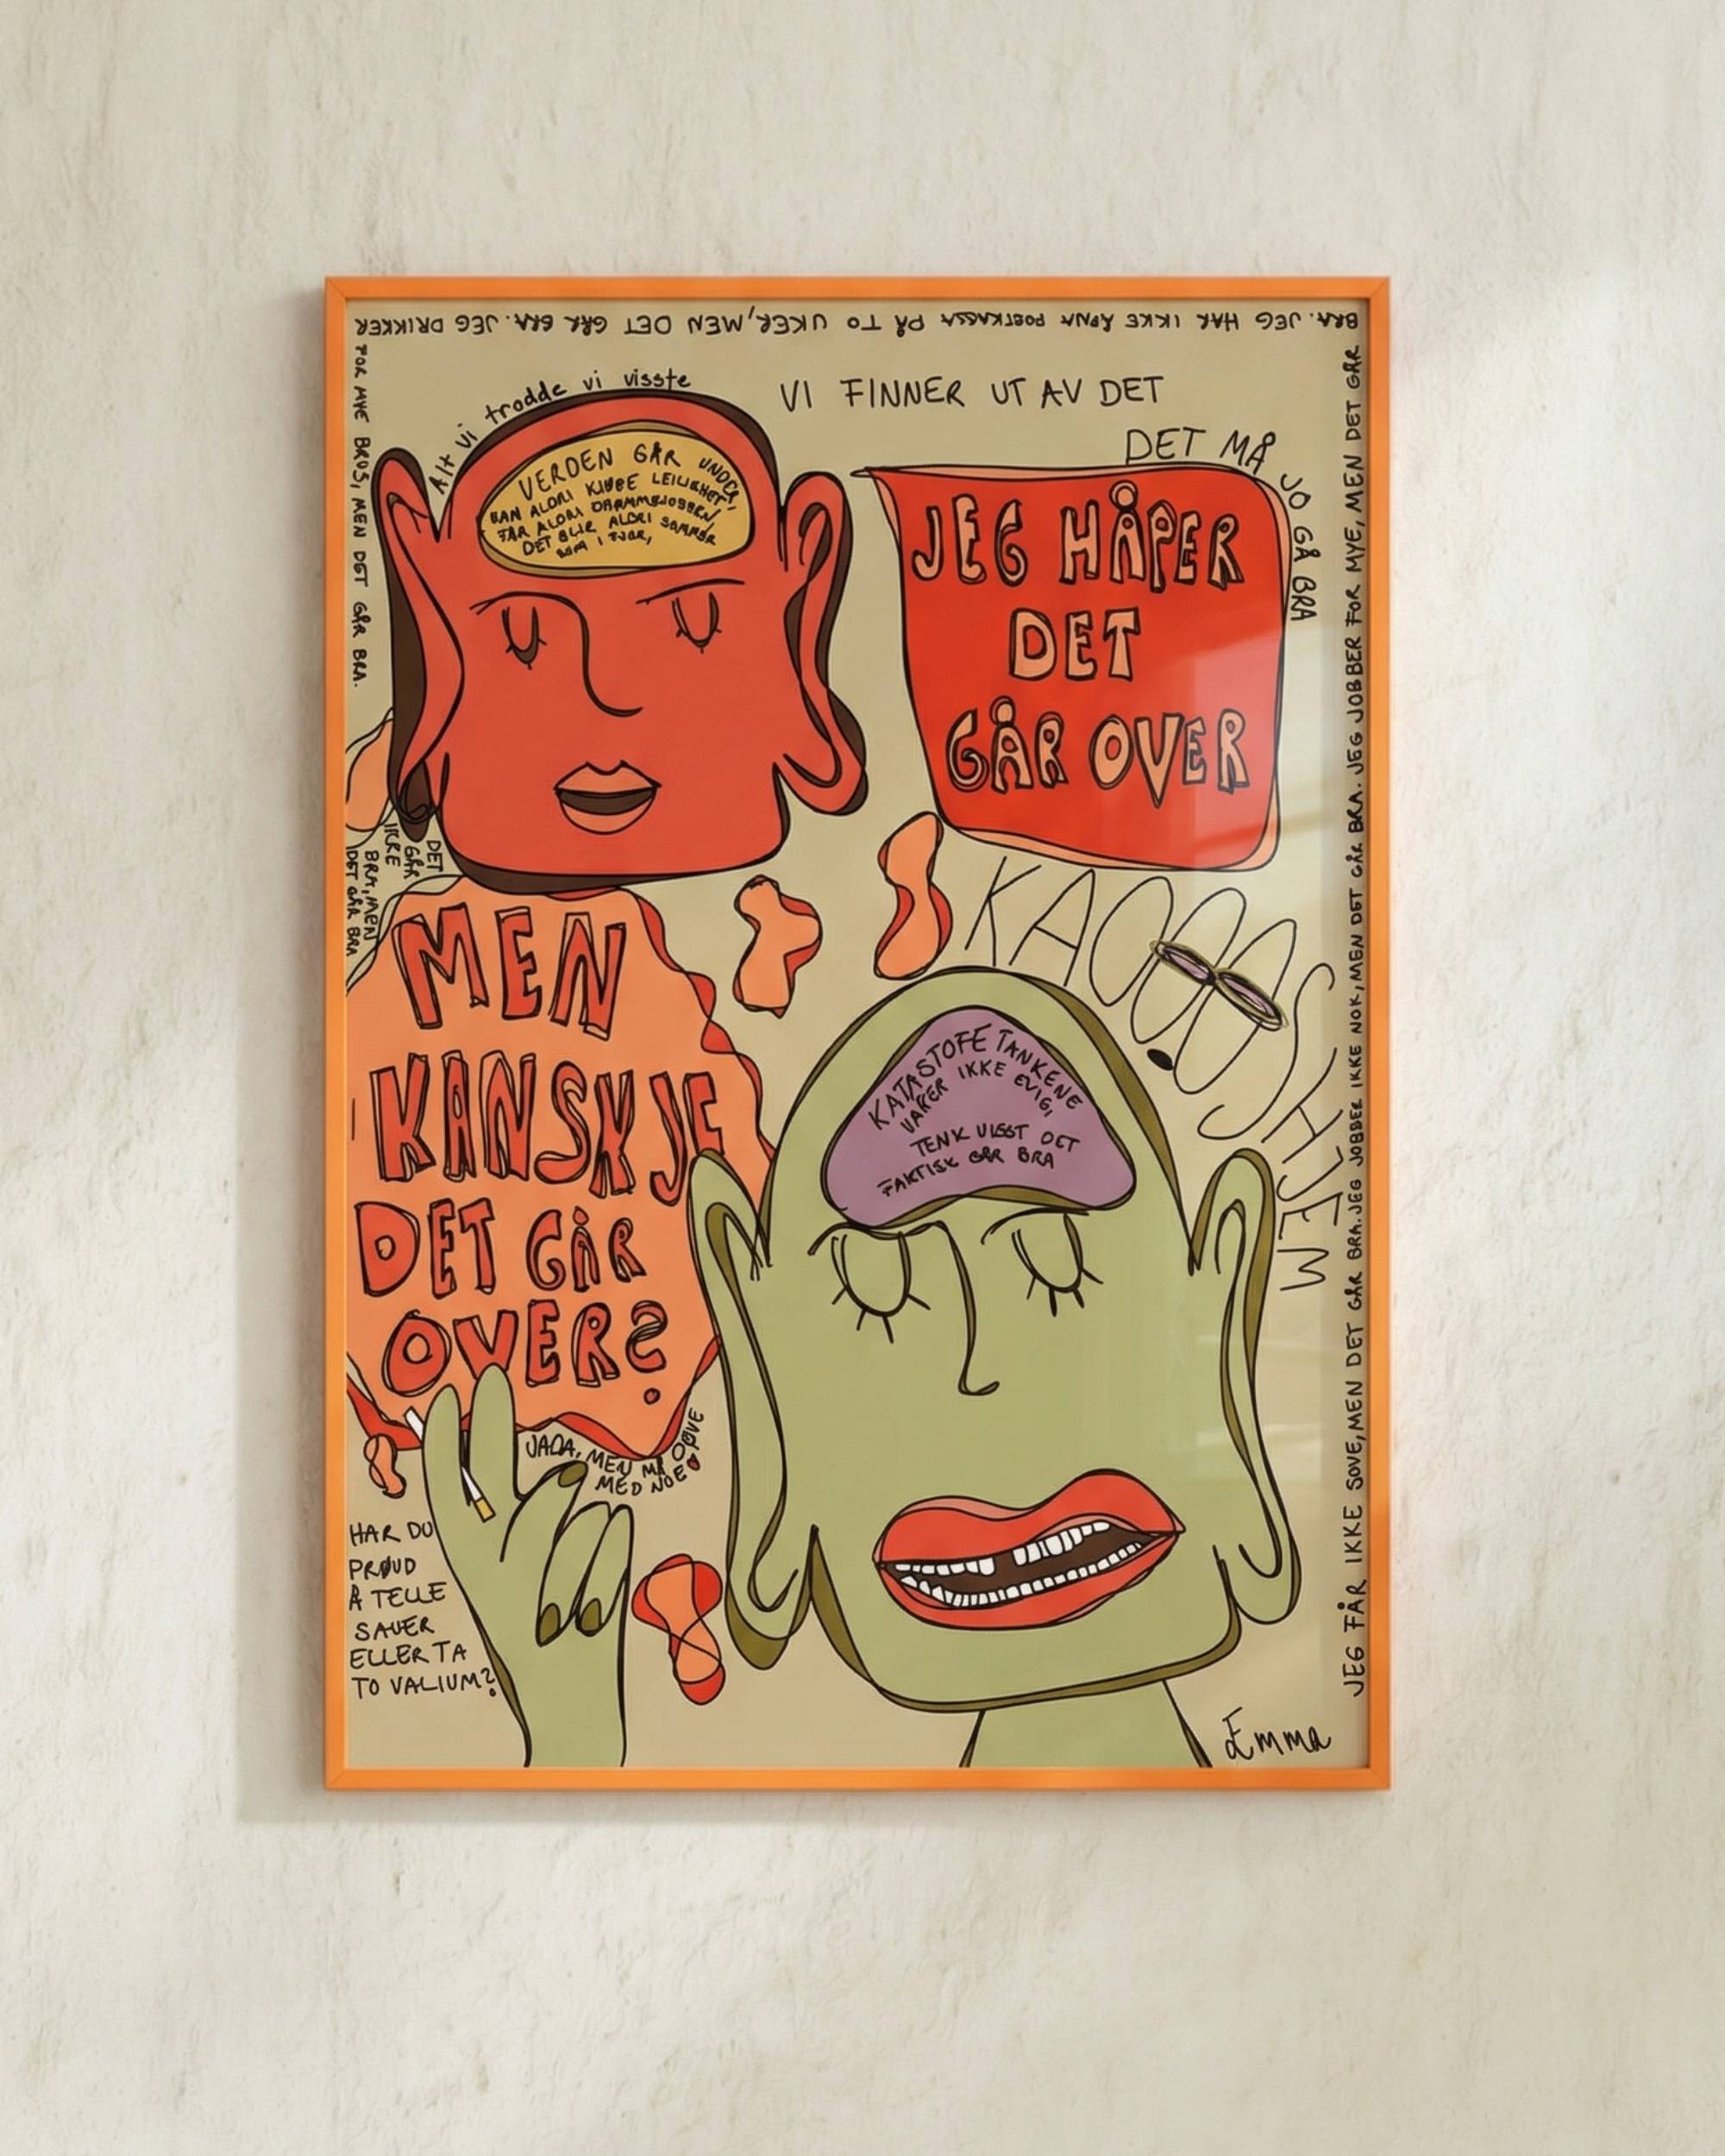 JEG FÅR IKKE SOVE, MEN DET GÅR BRA. JEG JOBBER IKKE NOK, MEN DET GÅR BRA. JEG JOBBER FOR MYE, MEN DET GÅR
BRA. JEG HAR IKKE ÅPNA POSTKASSA PÅ TO UKER, MEN DET GÅR BRA. JEG DRIKKER
FOR MYE BRUS, MEN DET GÅR BRA.
Alt vi trodde vi visste
VERDEN GÅR UNDER,
KAN ALDRI KJØPE LEILIGHET,
FÅR ALDRI DRØMMEJOBBEN,
DET BLIR ALDRI SOMMER
SOM I FJOR,
VI FINNER UT AV DET
DET MÅ JO GÅ BRA
JEG HÅPER
DET
GÅR OVER
DET
GÅR
IKKE
BRA, MEN
DET GÅR BRA
MEN
KANSKJE
DET GÅR
OVER?
KAOOOSHJEM
KATASTOFE TANKENE
VARER IKKE EVIG,
TENK VISST DET
FAKTISK GÅR BRA
JADA, MEN MÅ DØVE
MED NOE
HAR DU
PRØVD
Å TELLE
SAUER
ELLER TA
TO VALIUM?
Emma